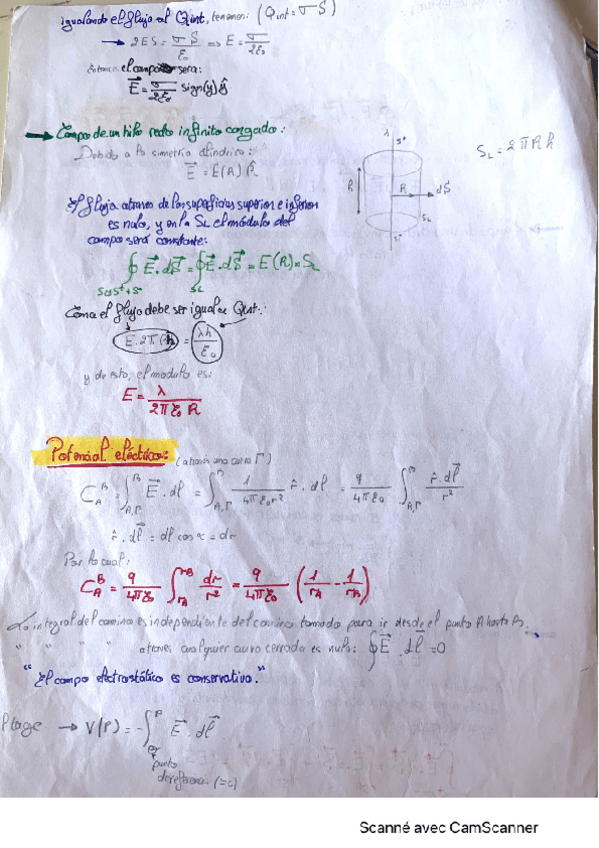 igualando el flujo al Qint, tenemos: (Qint = σS)
→ 2ES = σS/ε₀ => E = σ/2ε₀
el campo sera:
E⃗ = σ/2ε₀ sign(y) ŷ
→ Campo de un hilo recto infinito cargado:
Debido a la simetría cilíndrica:
E⃗ = E(R) R̂
λ
S⁺
h
R
dS⃗
S_L
S⁻
S_L = 2πRh
El flujo através de las superficies superior e inferior
es nulo, y en la S_L el módulo del
campo será constante:
∮ E⃗ . dS⃗ = ∮ E⃗ . dS⃗ = E(R) × S_L
S_L
Como el flujo debe ser igual a Qint.:
E . 2π = λh/ε₀
y de esto, el modulo es:
E = λ/2πε₀R
Potencial eléctrico: (através una curva Γ)
C_A^B = ∫_{A,Γ}^B E⃗ . dl = ∫_{A,Γ}^B 1/4πε₀r² r̂ . dl = q/4πε₀ ∫_{A,Γ}^B r̂ . dl⃗/r²
r̂ . dl⃗ = dl cos α = dr
Por lo cual:
C_A^B = q/4πε₀ ∫_{rA}^{rB} dr/r² = q/4πε₀ (1/rA - 1/rB)
La integral del camino es independiente del camino tomado para ir desde el punto A hasta B.
" " " através cualquier curva cerrada es nulo: ∮ E⃗ . dl⃗ = 0
"El campo electrostático es conservativo."
→ V(P) = -∫^P E⃗ . dl⃗
punto
de referencia
Scanné avec CamScanner